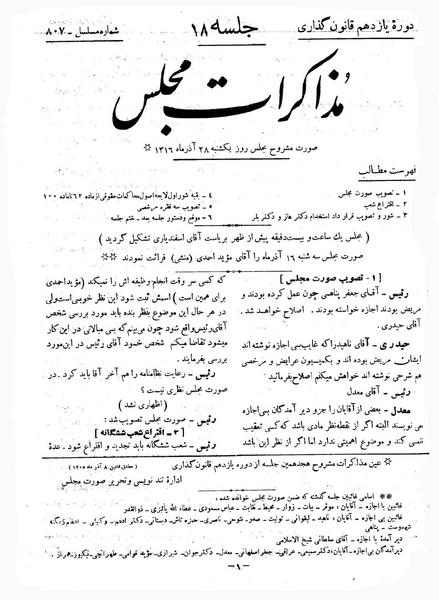 دورهٔ یازدهم قانون گذاری
جلسه ۱۸
شماره مسلسل - ۸۰۷
مذاکرات مجلس
صورت مشروح مجلس روز یکشنبه ۲۸ آذرماه ۱۳۱۶
فهرست مطالب
۱ - تصویب صورت مجلس
۲ - اقتراع شعب
۳ - شور و تصویب قرارداد استخدام دکتر هاز و دکتر بلر
۴ - بقیه شور اول لایحه اصول محاکمات حقوقی از ماده ۶۲ تا ماده ۱۰۰
۵ - تصویب سه فقره مرخصی
۶ - موقع و دستور جلسه بعد - ختم جلسه
( مجلس یك ساعت و بیست دقیقه پیش از ظهر بریاست آقای اسفندیاری تشکیل گردید )
صورت مجلس سه شنبه ۱۶ آذرماه را آقای مؤید احمدی (منشی) قرائت نمودند
[ ۱ - تصویب صورت مجلس ]
رئیس - آقای جعفر پناهی چون عمل کرده بودند و
مریض بودند اجازه خواسته بودند . اصلاح خواهد شد .
آقای حیدری .
حیدری - آقای ناهید را که غایب بی اجازه نوشته اند
ایشان مریض بوده اند و بکمیسیون عرایض و مرخصی
هم شرحی نوشته اند خواهش میکنم اصلاح بفرمائید
رئیس - آقای معدل
معدل - بعضی از آقایان را جزو دیر آمدگان بی اجازه
می نویسند البته اگر از نقطه نظر مادی باشد که کسی تعقیب
نمی کند و موضوع اهمیتی ندارد اما اگر از نظر این باشد
که کسی سر وقت انجام وظیفه اش را نمیکند (مؤید احمدی
برای همین است ) اسمش ثبت شود این نظر خوبی است ولی
در هر حال این موضوع بنظر بنده باید مورد بررسی شخص
آقای رئیس واقع شود چون می بینم که بی مبالاتی در این کار
میشود تقاضا میکنم شخص خود آقای رئیس در این مورد
بررسی بفرمایند .
رئیس - رعایت نظامنامه را هم آخر آقا باید کرد . در
صورت مجلس نظری نیست ؟
( اظهاری نشد )
رئیس - صورت مجلس تصویب شد :
[ ۲ - اقتراع شعب ششگانه ]
رئیس - شعب ششگانه باید تجدید و اقتراع شود . عدهٔ
عین مذاکرات مشروح هجدهمین جلسه از دوره یازدهم قانون گذاری
( مطابق قانون ۸ آذرماه ۱۳۰۵ )
ادارهٔ تند نویسی و تحریر صورت مجلس
اسامی غائبین جلسه گذشته که ضمن صورت مجلس خوانده شده :
غائبین با اجازه - آقایان : موقر - بیات - زوار - محیط - نقابت - عباس مسعودی - عطاء الله پالیزی - ذوالقدر
غائبین بی اجازه - آقایان : ناهید - لیقوانی - تولیت - صفوی - فتوحی - ناصری - حمزه تاش - دبستانی - دکتر ادهم - وکیلی -
شهدوست - پناهی
دیر آمدهٔ با اجازه - آقای سلطانی شیخ الاسلامی
دیر آمدگان بی اجازه - آقایان : دکتر سمیعی - عراقی - جعفر اصفهانی - معدل - دکتر جوان - شیرازی - مؤید قوامی - طهرانچی - نیکپور -
- ۱ -